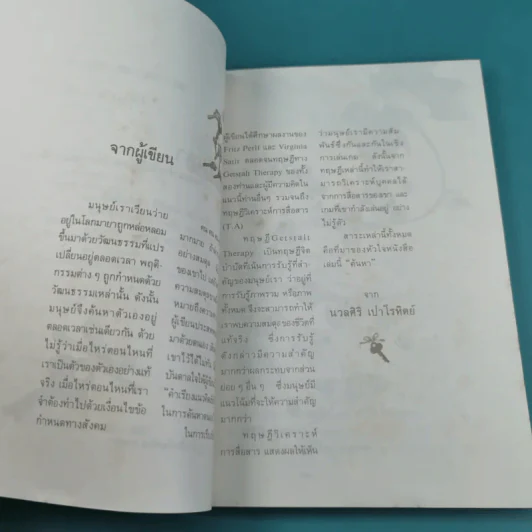 จากผู้เขียน
มนุษย์เราเวียนว่าย
อยู่ในโลกมายาถูกหล่อหลอม
ขึ้นมาด้วยวัฒนธรรมที่แปร
เปลี่ยนอยู่ตลอดเวลา พฤติ-
กรรมต่าง ๆ ถูกกำหนดด้วย
วัฒนธรรมเหล่านั้น ดังนั้น
มนุษย์จึงค้นหาตัวเองอยู่
ตลอดเวลาเช่นเดียวกัน ด้วย
ไม่รู้ว่าเมื่อไหร่ตอนไหนที่
เราเป็นตัวของตัวเองอย่างแท้
จริง เมื่อไหร่ตอนไหนที่เรา
จำต้องทำไปด้วยเงื่อนไขข้อ
กำหนดทางสังคม
มากมาย
อย่างสมดุล
ของเขาไป
ความสมดุล
หมายถึงความ
ผู้เขียนประสบ
มาด้วยตนเอง
เขาไว้ได้ในที่
บันดาลใจให้ผู้
ในการค้นหา
ในการเขียน
ผู้เขียนได้ศึกษาผลงานของ
Fritz Perlf และ Virginia
Satir ตลอดจนทฤษฎีทาง
Gestalt Therapy ของทั้ง
สองท่านและผู้มีความคิดใน
แนวนี้ท่านอื่นๆ รวมจนถึง
ทฤษฎีวิเคราะห์การสื่อสาร
(T.A)
ทฤษฎี Gestalt
Therapy เป็นทฤษฎีจิต
บำบัดที่เน้นการรับรู้ที่สำ
คัญของมนุษย์เรา ว่าอยู่ที่
การรับรู้ภาพรวม หรือภาพ
ทั้งหมด จึงจะสามารถทำให้
เราพบความสมดุลของชีวิตที่
แท้จริง ซึ่งการรับรู้
ดังกล่าวมีความสำคัญ
มากกว่าผลกระทบจากส่วน
ย่อยๆ อื่น ๆ ซึ่งมนุษย์มี
แนวโน้มที่จะให้ความสำคัญ
มากกว่า
ทฤษฎีวิเคราะห์
การสื่อสาร แสดงผลให้เห็น
ว่ามนุษย์เรามีความสัม
พันธ์ซึ่งกันและกันในเชิง
การเล่นเกม ดังนั้นจาก
ทฤษฎีเหล่านี้ทำให้เราสา
มารถวิเคราะห์บุคคลได้
จากการสื่อสารของเขา และ
เกมที่เขากำลังเล่นอยู่ อย่าง
ไม่รู้ตัว
สาระเหล่านี้ทั้งหมด
คือที่มาของหัวใจหนังสือ
เล่มนี้ "ค้นหา"
จาก
นวลศิริ เปาโรหิตย์